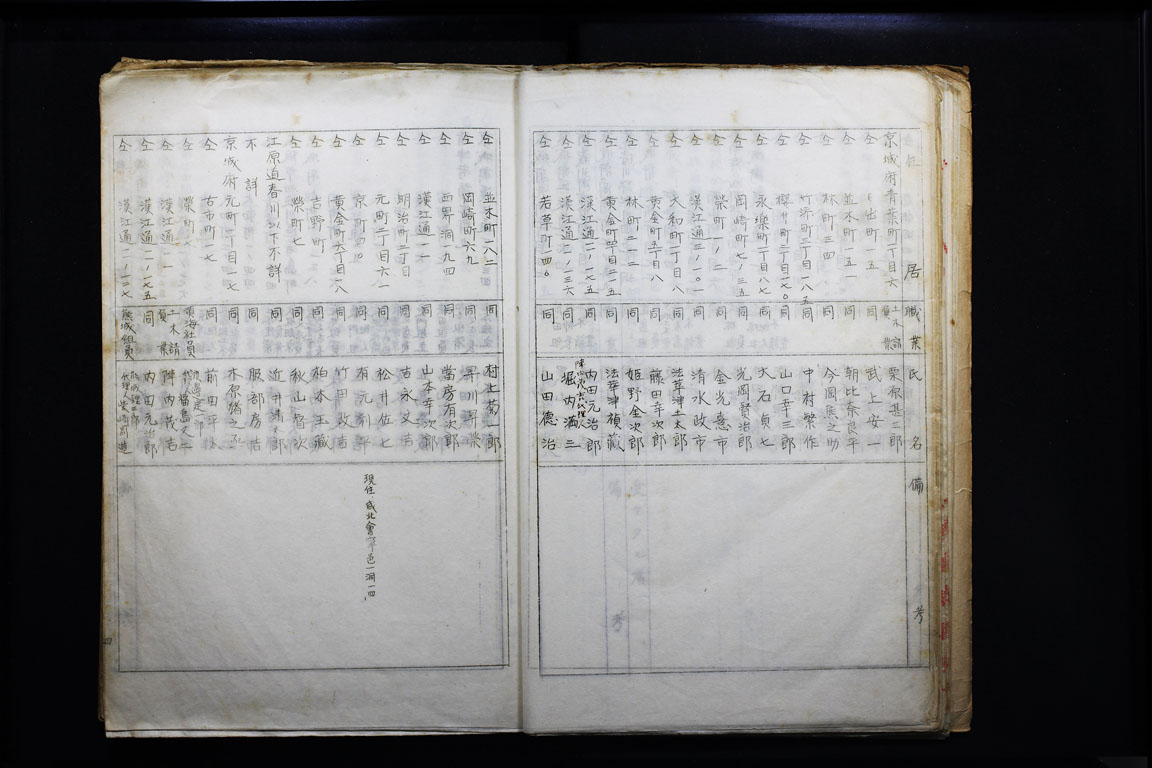 居 職業 氏名 備考
京城府青葉町一丁目六 土木請負業 栗原甚三郎
仝 出町一五 同 武上安一
仝 並木町五一 同 朝比奈良平
仝 林町三四 同 今岡熊之助
仝 竹添町三丁目一八五 同 中村繁作
仝 櫻井町二丁目一七〇 同 山口幸三郎
仝 永樂町一丁目八七 同 大石貞七
仝 岡崎町七ノ三五 同 光岡賢治郎
仝 榮町一ノ二 同 金光憙市
仝 漢江通三ノ一〇一 同 清水政市
仝 大和町一丁目八 同 法華津土太郎
仝 黄金町五丁目八 同 藤田幸次郎
仝 林町二一二 同 姫野金次郎
仝 黄金町四丁目二一五 同 法華津禎藏
仝 漢江通二ノ一七五 同 内田元治郎
仝 漢江通一一ノ一三六 同 堀内満三
仝 若草町四〇 同 山田德治
仝 並木町一八二 同 村上菊一郎
仝 岡崎町六九 同
仝 西界洞九四 同 當房有次郎
仝 漢江通一一 同 山本幸次郎
仝 明治町二丁目 同 吉永丈吉
仝 元町二丁目六一 同 松井佐七
仝 京町一〇 同 有元利平 現住 咸北會寧邑一洞一四
仝 黄金町六丁目一八 同 竹田政吉
仝 吉野町一 同 柏木玉藏
仝 榮町七 同 秋山督次
江原道春川以下不詳 同 近井清太郎
不詳 同 服部房吉
京城府元町一丁目一七 同 木原緒之丞
仝 古市町一七 同 前田平
仝 榮町七
仝 漢江通一一 土木請負業 陣内茂吉
仝 漢江通二ノ一七五 同 内田元治郎
仝 漢江通一一ノ一二七 熊城組員